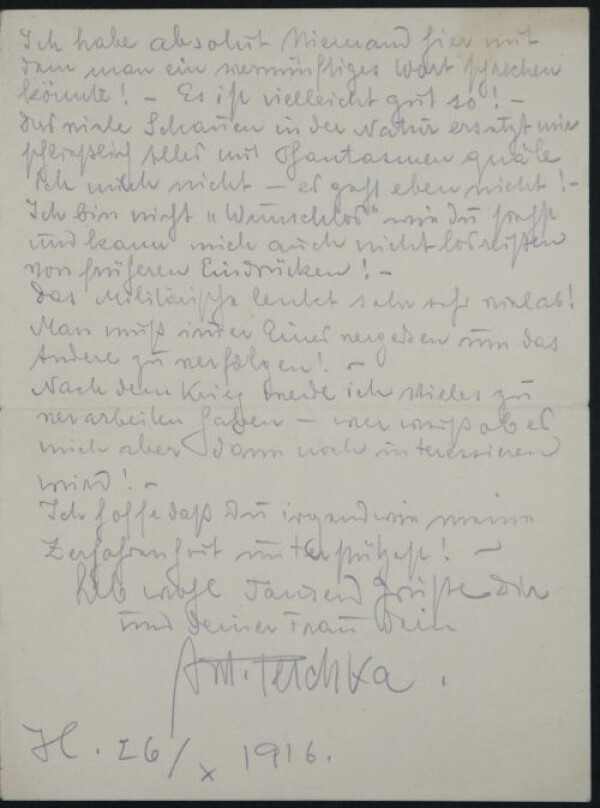 Ich habe absolut Niemand hier mit
dem man ein vernünftiges Wort sprechen
könnte! – Es ist vielleicht gut so! –
Das viele Schauen in der Natur ersetzt mir
schließlich Alles mit Phantasmen quäle
ich mich nicht – es geht eben nicht! –
Ich bin nicht „Wunschlos“ wie du
und kann mich auch nicht losreißen
von früheren Eindrücken! –
Das Militärische lenkt sehr viel ab!
Man muß Eines vergessen um das
Andere zu verfolgen! –
Nach dem Krieg werde ich Vieles zu
verarbeiten haben – wer weiß ob es
mich aber dann noch interessieren
wird! –
Ich hoffe daß du irgendwie meine
Zerfahrenheit
Leb wohl Tausend Grüße Dir
und deiner Frau Dein
A.M.
26/X 1916.